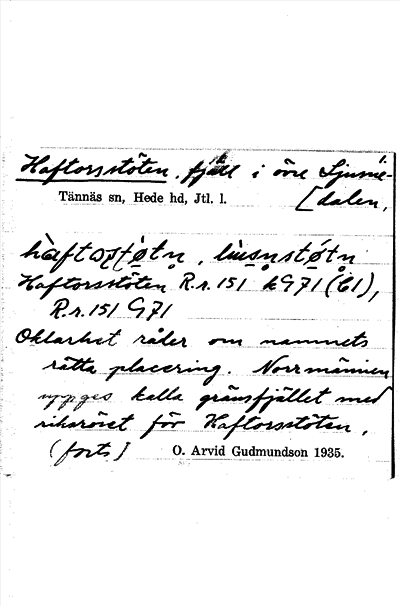 Haftorsstöten, fjäll i övre Ljusne-
Tännäs sn, Hede hd, Jtl. l. [dalen,
Haftorsstöten R.r. 151 k G 71 (Öl),
R.r. 151 G 71
Oklarhet råder om namnets
rätta placering. Norrmännen
uppges kalla gränsfjället med
riksröset för Haftorsstöten.
(forts) O. Arvid Gudmundson 1935.